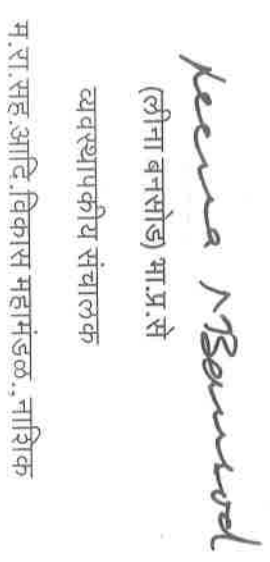 Leena Bansod
(लीना बनसोड) भा.प्र.से
व्यवस्थापकीय संचालक
म.रा.सह.आदि.विकास महामंडळ.,नाशिक